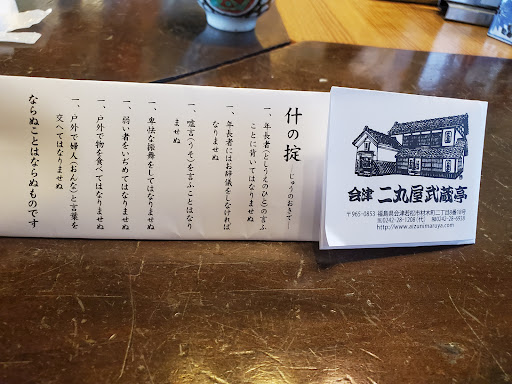 什の掟 ―じゅうのおきて―
一、年長者(としうえのひと)の言ふ
ことに背いてはなりませぬ
一、年長者にはお辞儀をしなければ
なりませぬ
一、嘘言(うそ)を言ふことはなり
ませぬ
一、卑怯な振舞をしてはなりませぬ
一、弱い者をいぢめてはなりませぬ
一、戸外で物を食べてはなりませぬ
一、戸外で婦人(おんな)と言葉を
交へてはなりませぬ
ならぬことはならぬものです
会津 二丸屋武蔵亭
〒965-0853 福島県会津若松市材木町二丁目8番18号
TEL0242-28-1208(代) FAX0242-28-6938
http://www.aizunimaruya.com